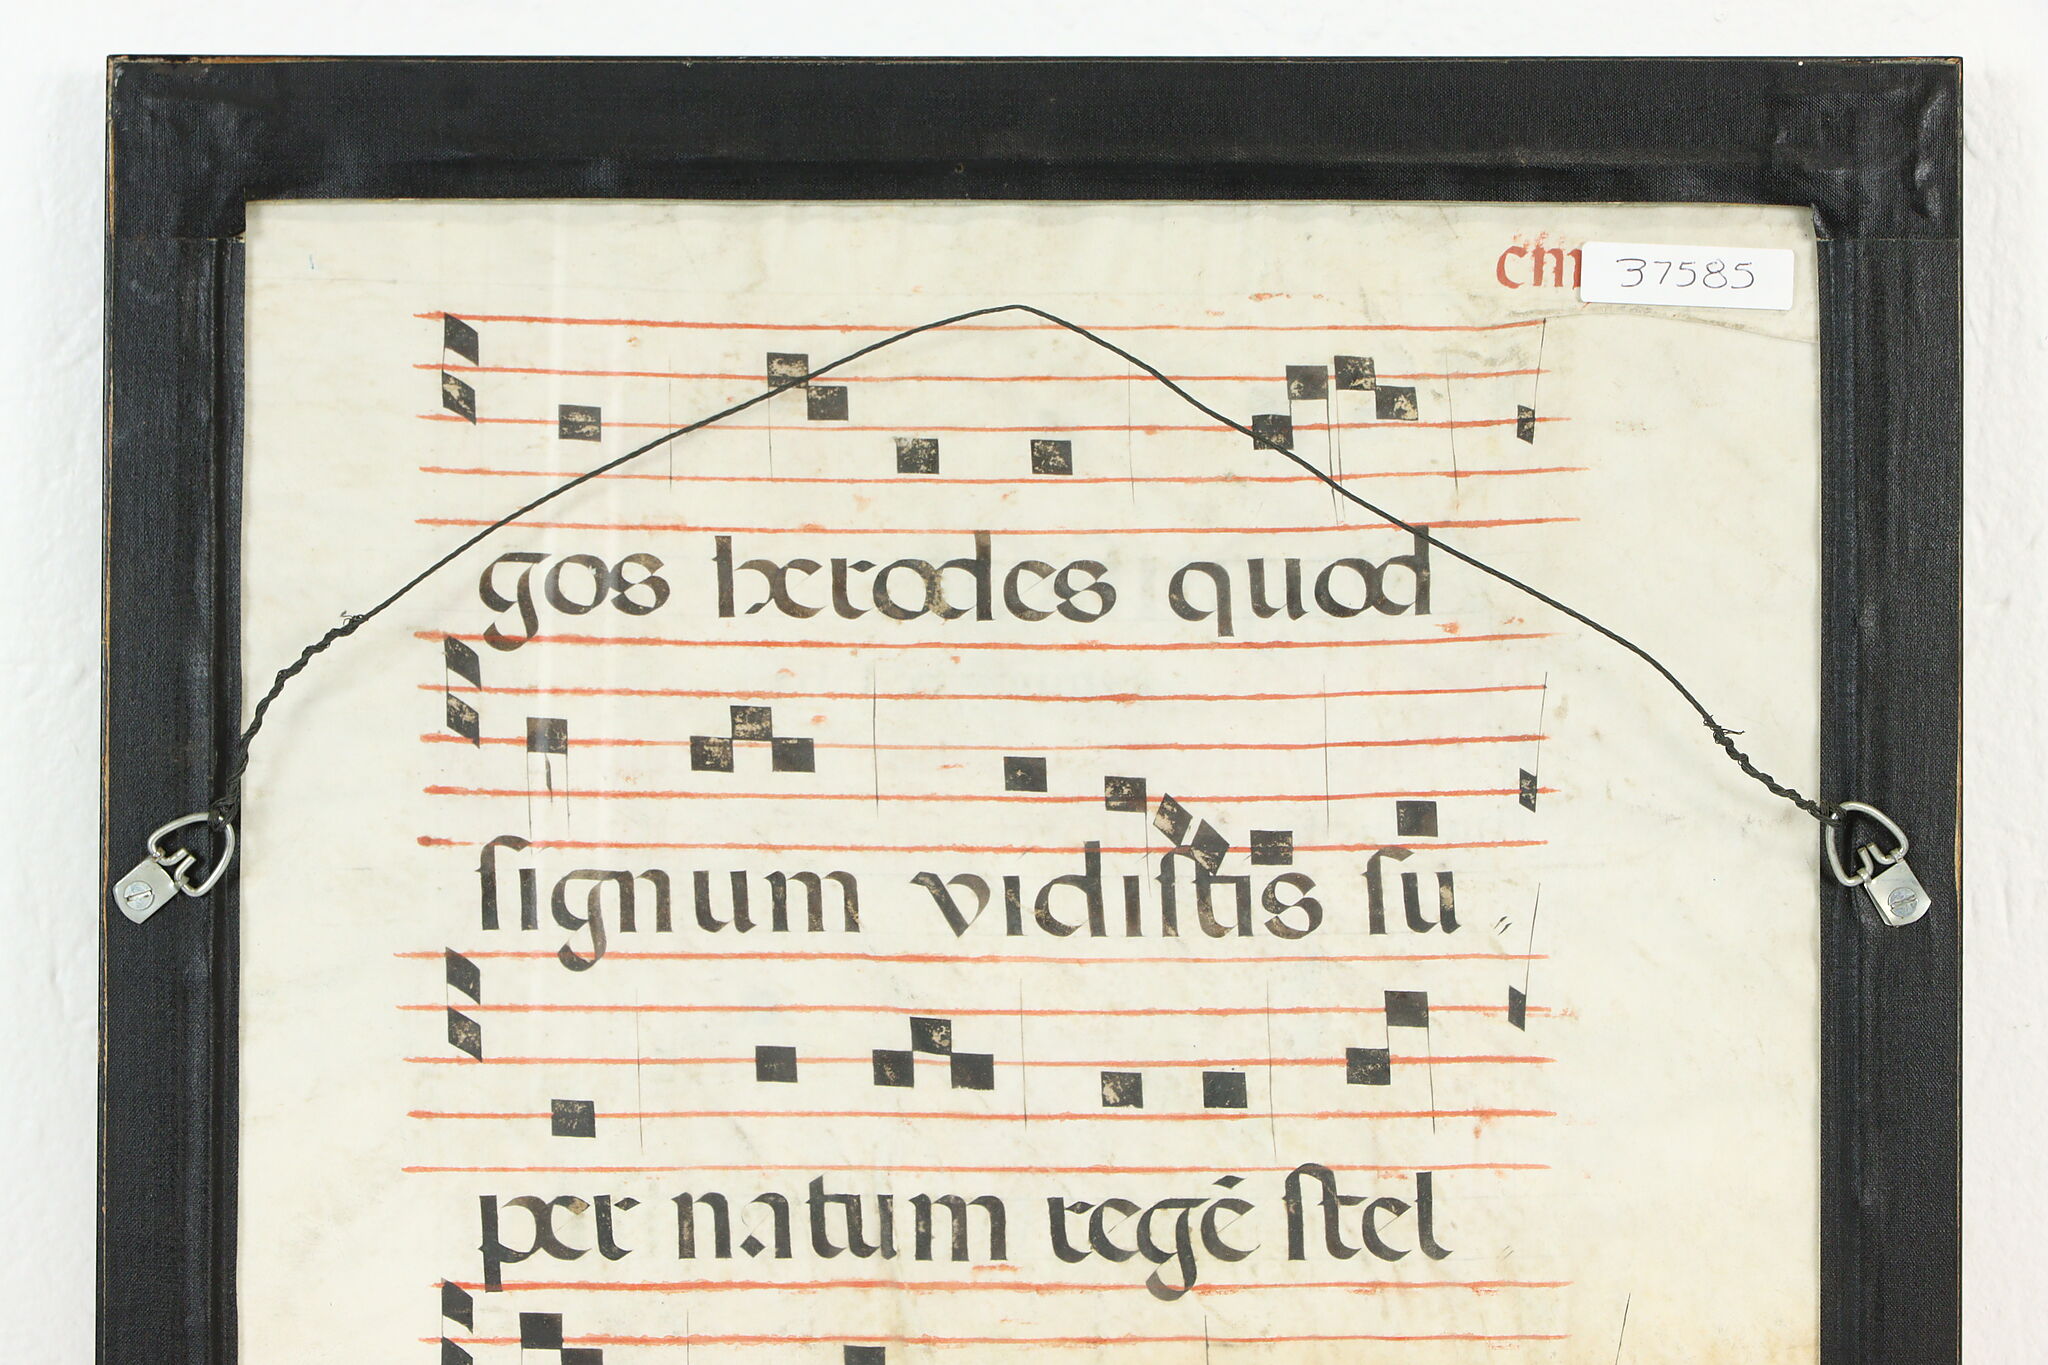 37585
gos herodes quod
signum vidistis su〃
per natum regē stel